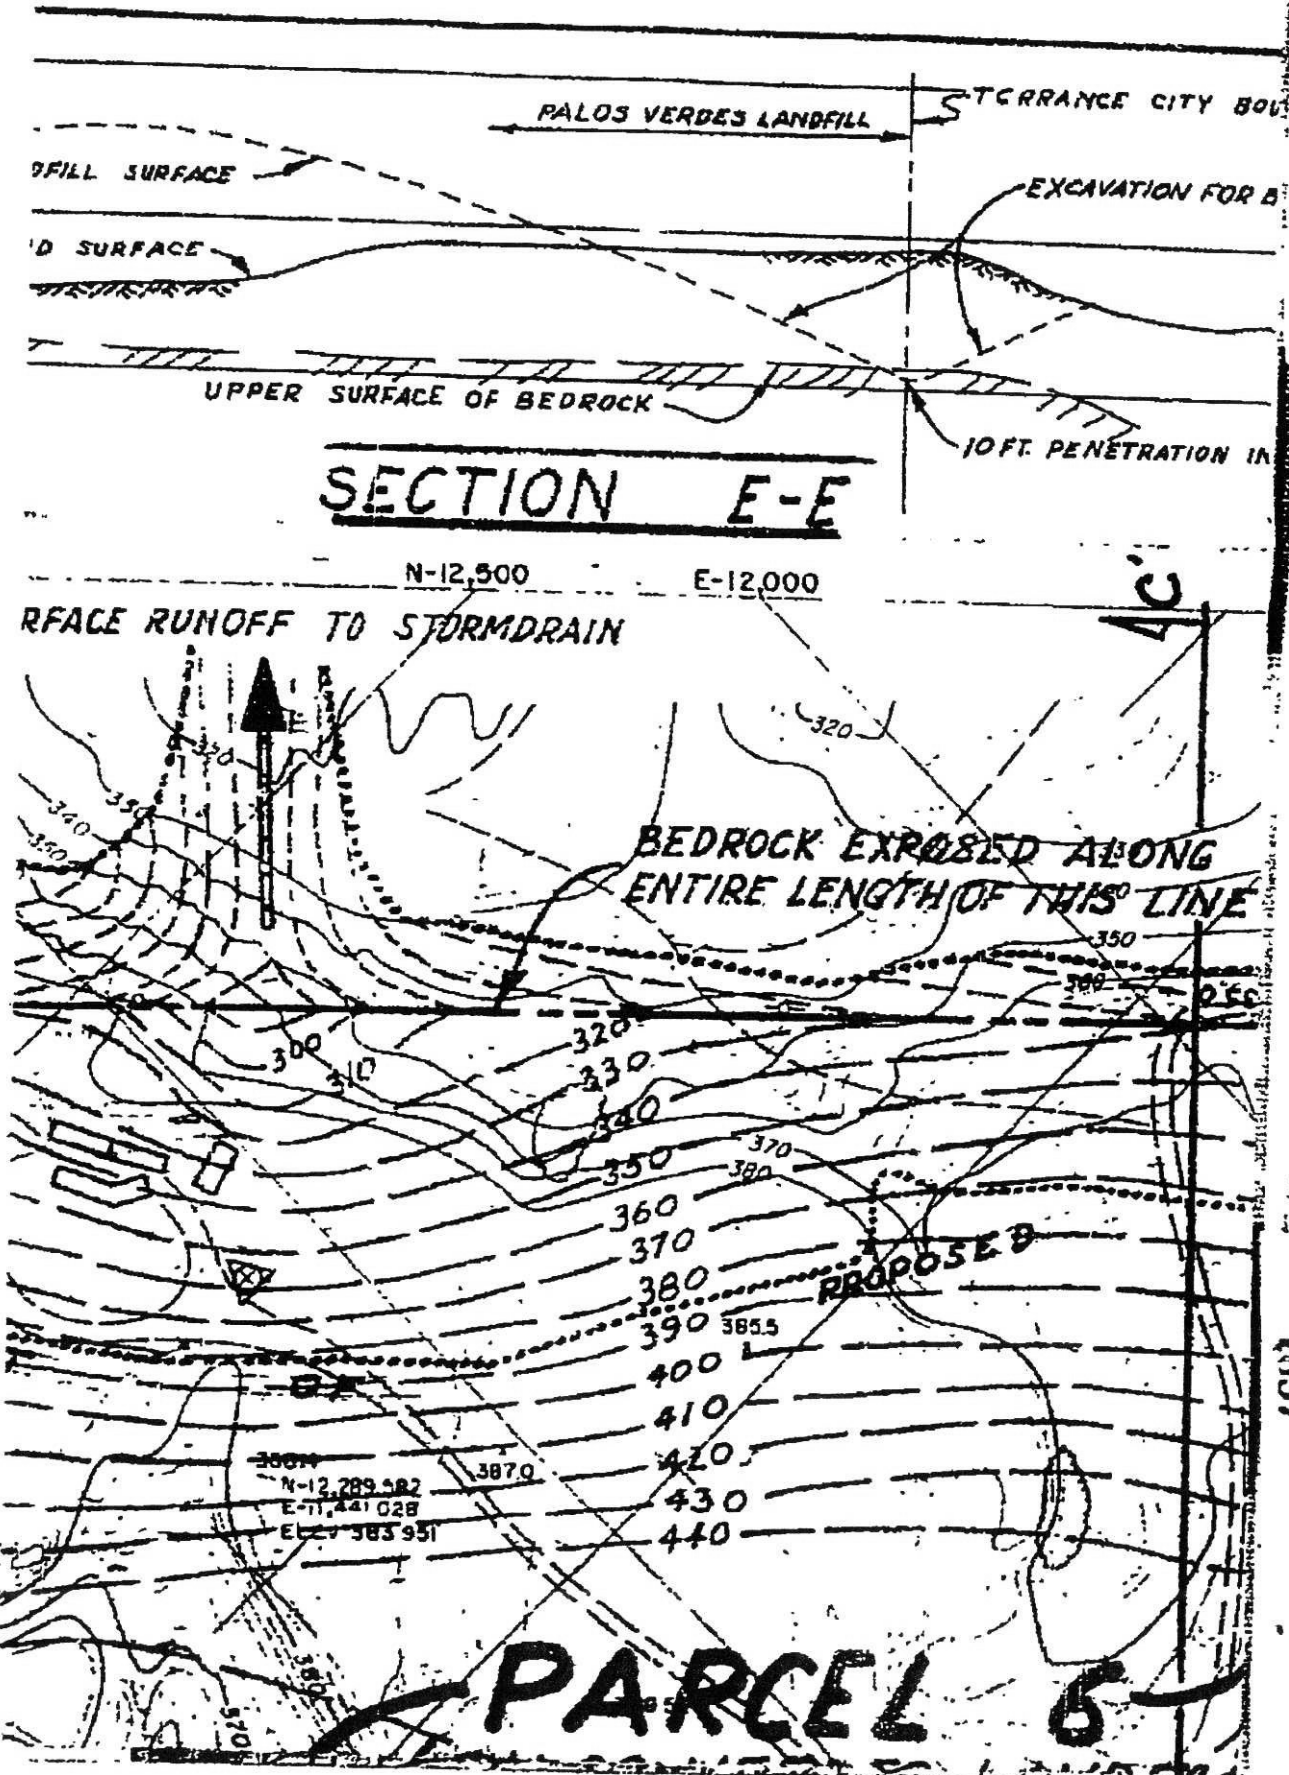 PALOS VERDES LANDFILL
TORRANCE CITY BOU
DFILL SURFACE
EXCAVATION FOR B
D SURFACE
UPPER SURFACE OF BEDROCK
10 FT. PENETRATION IN
SECTION E-E
N-12,500 E-12,000
C'
RFACE RUNOFF TO STORMDRAIN
320
340
350
BEDROCK EXPOSED ALONG
ENTIRE LENGTH OF THIS LINE
350
300
310
320
330
340
350
370
380
360
370
380
PROPOSED
390 385.5
400
410
420
387.0
N-12,289.582
E-11,441.028
ELEV 383.951
430
440
380
370
PARCEL 6